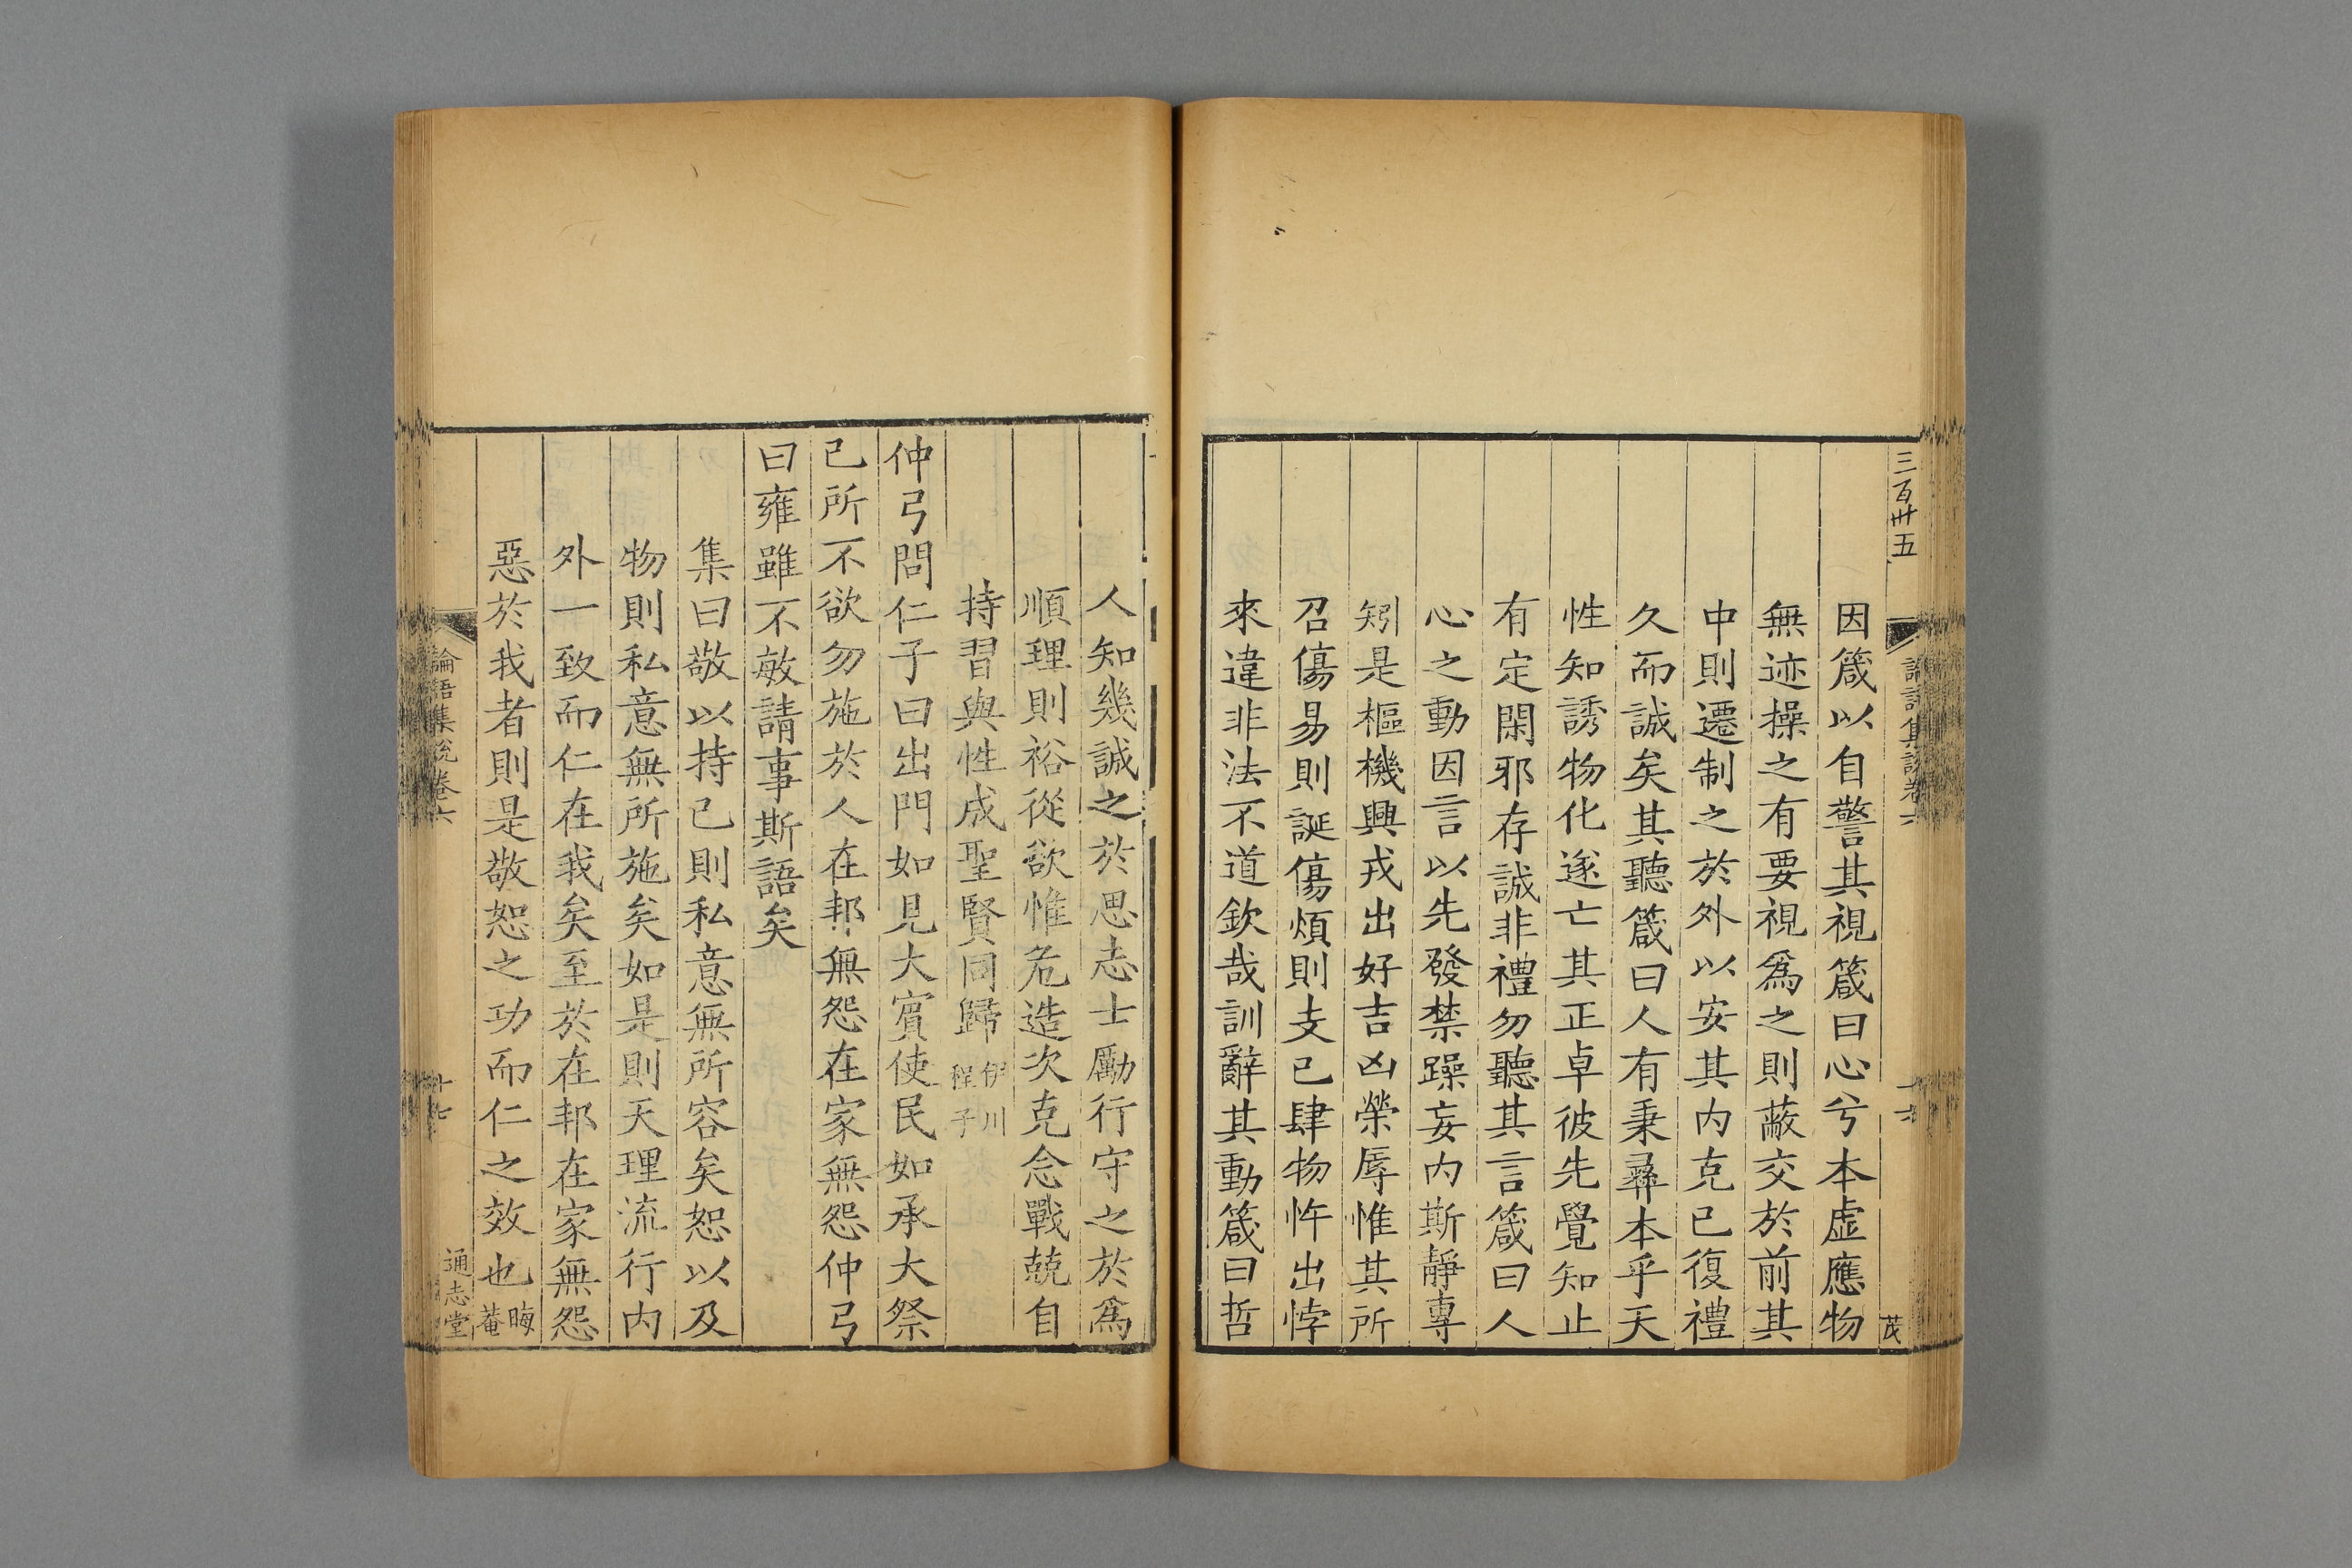 三百卅五
因箴以自警其視箴曰心兮本虛應物
無迹操之有要視爲之則蔽交於前其
中則遷制之於外以安其内克已復禮
久而誠矣其聽箴曰人有秉彛本乎天
性知誘物化遂亡其正卓彼先覺知止
有定閑邪存誠非禮勿聽其言箴曰人
心之動因言以先發禁躁妄内斯靜專
矧是樞機興戎出好吉凶榮辱惟其所
召傷易則誕傷煩則支已肆物忤出悖
來違非法不道欽哉訓辭其動箴曰哲
人知幾誠之於思志士勵行守之於爲
順理則裕從欲惟危造次克念戰兢自
持習與性成聖賢同歸伊川程子
仲弓問仁子曰出門如見大賓使民如承大祭
已所不欲勿施於人在邦無怨在家無怨仲弓
曰雍雖不敏請事斯語矣
集曰敬以持已則私意無所容矣恕以及
物則私意無所施矣如是則天理流行内
外一致而仁在我矣至於在邦在家無怨
惡於我者則是敬恕之功而仁之效也晦菴
論語集說卷六
十七
通志堂